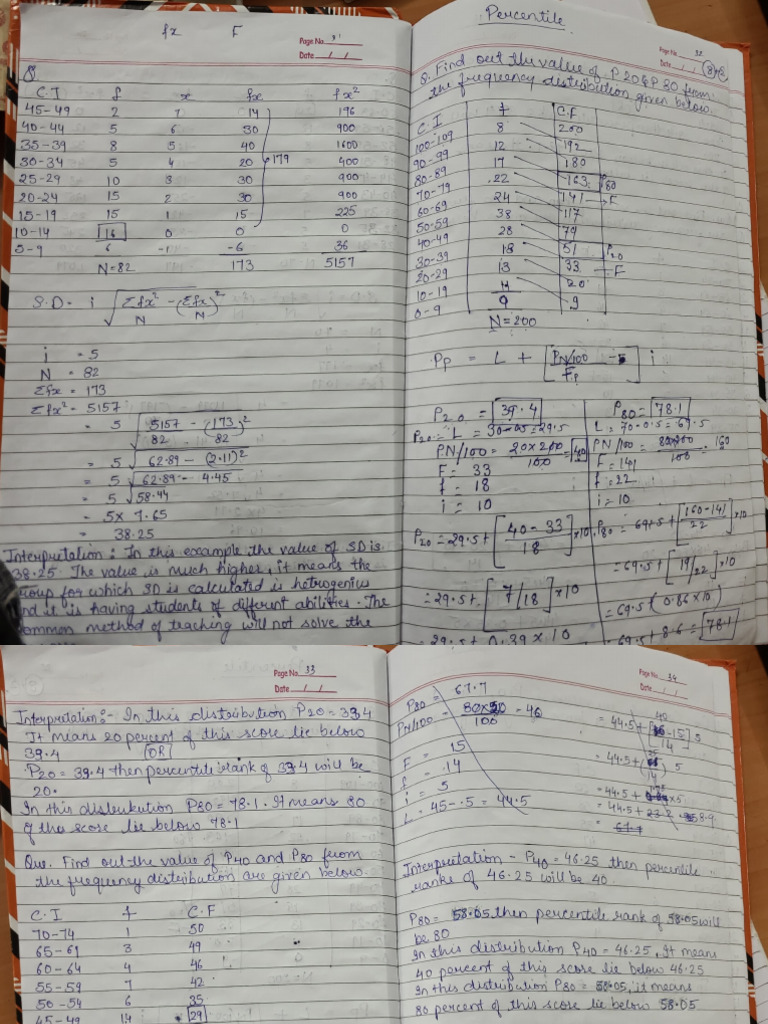 fx F
Page No. 31
Date / /
Q
C.I f x fx fx²
45-49 2 7 14 196
40-44 5 6 30 900
35-39 8 5 40 1600
30-34 5 4 20 400
25-29 10 3 30 900
20-24 15 2 30 900
15-19 15 1 15 225
10-14 16 0 0 0
5-9 6 -1 -6 36
179
N=82 173 5157
S.D = i √ Σfx²/N - (Σfx/N)²
i = 5
N = 82
Σfx = 173
Σfx² = 5157
= 5 √ 5157/82 - (173)²/82
= 5 √ 62.89 - (2.11)²
= 5 √ 62.89 - 4.45
= 5 √ 58.44
= 5 x 7.65
= 38.25
Interpretation : In this example the value of SD is
38.25 The value is much higher, it means the
group for which SD is calculated is hetrogenius
and it is having students of different abilities. The
common method of teaching will not solve the
Percentile
Page No. 32
Date / /
Q. Find out the value of P20 & P80 from
the frequency distribution given below.
C.I f C.F
100-109 8 200
90-99 12 192
80-89 17 180
70-79 22 163 P80
60-69 24 141 F
50-59 38 117
40-49 28 79
30-39 18 51 P20
20-29 13 33 F
10-19 11 20
0-9 9 9
N=200
Pp = L + [PN/100 - F / Fp] i
P20 = 39.4
P20 = L = 30-05 = 29.5
PN/100 = 20x200/100 = 40
F = 33
f = 18
i = 10
P20 = 29.5 + [40-33/18] x10
= 29.5 + [7/18] x10
= 29.5 + 0.39 x 10
P80 = 78.1
L = 70-0.5 = 69.5
PN/100 = 80x200/100 = 160
F = 141
f = 22
i = 10
P80 = 69.5 + [160-141/22] x10
= 69.5 + [19/22] x10
= 69.5 (0.86 x10)
= 69.5 + 8.6 = 78.1
Page No. 33
Date / /
Interpretation :- In this distribution P20 = 39.4
It means 20 percent of this score lie below
39.4 OR
P20 = 39.4 then percentile rank of 39.4 will be
20.
In this distribution P80 = 78.1. It means 80
of the score lie below 78.1
Que. Find out the value of P40 and P80 from
the frequency distribution are given below.
C.I f C.F
70-74 1 50
65-61 3 49
60-64 4 46
55-59 7 42
50-54 6 35
45-49 14 29
Page No. 34
Date / /
P80 = 67.7
PN/100 = 80x50/100 = 46
F = 15
f = 14
i = 5
L = 45-.5 = 44.5
= 44.5 + [40-15/14] 5
= 44.5 + ( /14) 5
= 44.5 + x5
= 44.5 + 23.2
Interpretation - P40 = 46.25 then percentile
ranks of 46.25 will be 40.
P80 = 58.05 then percentile rank of 58.05 will
be 80
In this distribution P40 = 46.25, It means
40 percent of this score lie below 46.25
In this distribution P80 = 58.05, it means
80 percent of this score lie below 58.05